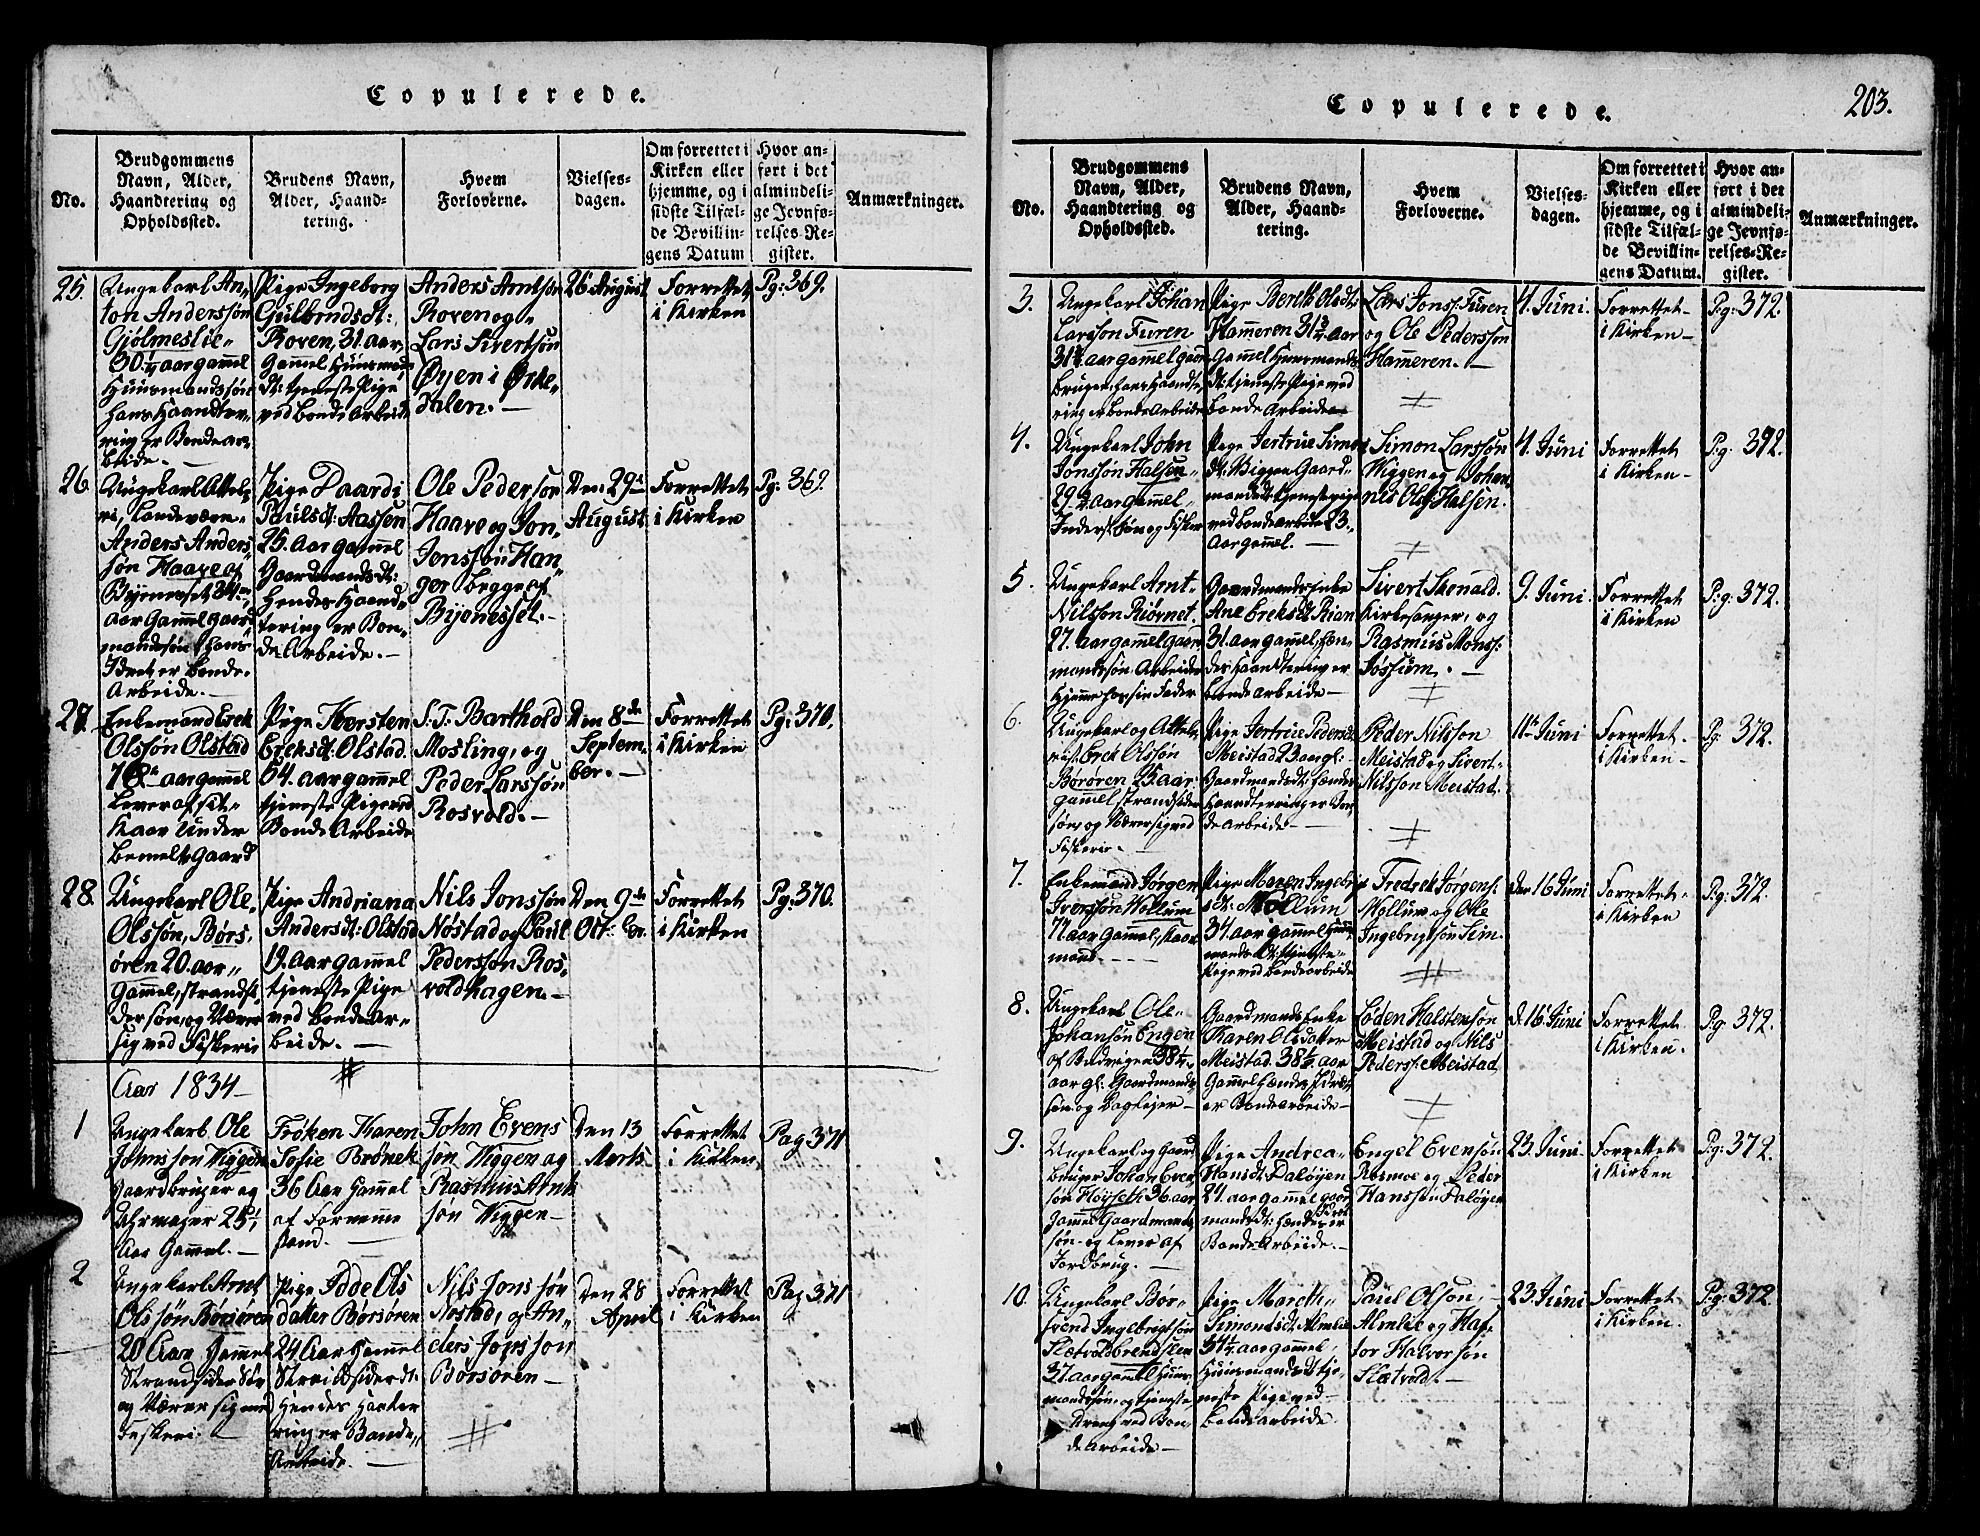 Copulerede.
No.
Brudgommens
Navn, Alder,
Haandtering og
Opholdssted.
Brudens Navn,
Alder, Haand-
tering.
Hvem
Forloverne.
Vielses-
dagen.
Om forrettet i
Kirken eller
hjemme, og i
sidste Tilfæl-
de Bevillin-
gens Datum
Hvor an-
ført i det
almindeli-
ge Jevnfø-
relses-Re-
gister.
Anmærkninger.
25.
Ungekarl An-
ton Anderssøn
Gjølmeslie
30 1/4 aar gamel
Huusmandssøn
hans Haandte-
ring er Bondear-
beide.
Pige Ingeborg
Gulbrndsdt:
Roven, 31. aar
Gamel Huusmds
dt: tjeneste Pige
ved Bonde Arbeide
Anders Arntsøn
Roven og
Lars Sivertsøn
Øyen i Örke-
dalen.
26 August
Forrettet
i Kirken
Pg: 369.
26
Ungekarl Attel-
ri, Landeværn
Anders Anders-
søn Haave af
Byenesset 34
aar Gamel gaard
mandssøn hans
Idret er Bonde-
Arbeide.
Pige Paardi
Paulsdt: Aassen
25. aar gammel
Gaardmandsdt:
Hendes Haand-
tering er Bon-
de Arbeide.
Ole Pedersøn
Haave og Jon
Jonssøn Han-
ger begge af
Byenesset.
Den 29de
August
Forrettet
i Kirken
Pg: 369.
27.
Enkemand Erek
Olssøn Olstad
78 aar gamel
Lever af sit
Kaar Under
bemelte Gaard
Pige Kersten
Ereksdt: Olstad.
54. aar gammel
tjeneste Pige ved
Bonde Arbeide
S. T. Barthold
Mosling, og
Peder Larssøn
Rosvold.
Den 8de
Septem-
ber.
Forrettet
i Kirken
Pg: 370.
28
Ungekarl Ole
Olssøn, Børs-
øren 20. aar
Gamel, strandsi-
dersøn, og Nærer
sig ved Fiskerie
Pige Andriana
Andersdt: Olstad
19. aar gamel
tjeneste Pige
ved bonde Ar-
beide.
Nils Jonssøn
Nøstad og Paul
Pederssøn Ros-
voldhagen.
Den 9de
Oct: br.
Forrettet
i Kirken
Pg: 370.
Aar 1834
1
Ungekarl Ole
Johnssøn Wiggen
Gaardbruger og
Uhrmager 25 1/2
Aar Gammel.
Frøken Karen
Sofie Brønek
36 Aar Gammel
af Fornemme
stand.
John Evens
søn Wiggen og
Rasmus Arnt
søn Wiggen
Den 13
Marts.
Forrettet
i Kirken
Pag 371
2
Ungekarl Arnt
Olssøn Børsøren
20 Aar Gammel
Strandsider Søn
og Nærer sig med
Fiskeri.
Pige Idde Ols
datter Børsøren
24 Aar Gammel
Strandsiderdt:
Hendes Hante
ring er Bonde
Arbeide.
Nils Jons søn
Nostad, og An-
ders Jonssøn
Børsøren
Den 28
April
Forrettet
i Kirken
Pag 371
Copulerede.
203.
No.
Brudgommens
Navn, Alder,
Haandtering og
Opholdssted.
Brudens Navn,
Alder, Haand-
tering.
Hvem
Forloverne.
Vielses-
dagen.
Om forrettet i
Kirken eller
hjemme, og i
sidste Tilfæl-
de Bevillin-
gens Datum.
Hvor an-
ført i det
almindeli-
ge Jevnfø-
relses-Re-
gister.
Anmærkninger.
3.
Ungekarl Johan
Larsson Furen
31 3/4 aar gammel gaard
bruger, hans Haandte-
ring er bonde Arbeide
Pige Bereth Olsdt:
Hammeren 31 3/4 aar
Gamel Huusmands
dt: tjeneste Pige ved
bonde Arbeide
Lars Jons: Furen
og Ole Pederssøn
Hameren.
4. Juni.
Forrettet
i Kirken
Pg: 372.
4.
Ungekarl John
Jonssøn Halsen
29 aar gamel
Inderst søn og Fisker
Pige Jertrue Simons
dt: Wiggen Gaard-
mandsdt: tjenestepige
ved bonde arbeide 23.
Aar gamel.
Simon Larssøn
Wiggen og Johan
nes Ols: Halsen.
4. Juni
Forrettet
i Kirken
Pg: 372.
5.
Ungekarl Arnt
Nilsson Riørnet
27. aar gamel gaar
mandssøn Arbeider
hjemme hos sin Fader
Gaardmands enke
Ane Ereksdt: Rian
31. aar gamel, Hen-
des Haandtering er
bonde arbeide
Sivert Skenald.
Kirkesanger, og
Rasmus Monss:
Jøssum.
9. Juni.
Forrettet
i Kirken
Pg: 372.
6.
Ungekarl og Attel-
rist Erek Olssøn
Børøren 25 aar
gamel strandsider
søn, og Nærer sig ved
Fiskerie
Pige Jertrue Peders
Meistad 23 aar gl:
Gaardmandsdt: Hendes
Haandterring er bon-
de arbeide
Peder Nilsson
Meistad og Sivert
Nilsson Meistad.
11te Juni
Forrettet
i Kirken
Pg: 372.
7.
Enkemand Jørgen
Iversson Mollum
77 aar gamel, Kaar
mand.
Pige Maren Ingebri
dt: Mollum
34. aar gammel Huus-
mands dt: tjeneste
Pige ved bonde arbeide
Fredrek Jørgens:
Mollum og Ole
Ingebrigtsøn Sim.
Den 16 Juni
Forrettet
i Kirken
Pg: 372.
8.
Ungekarl Ole
Johansøn Engen
af Budvigen 38 1/4
aar gl: Gaardmands
søn og Daglejer
Gaardmands Enke
Karen Elsdatter
Meistad. 38 1/2 aar
Gammel Hendes Idret
er Bonde arbeide
Løden Halstensøn
Meistad og Nils
Peders: Meistad
d. 16 Juni
Forrettet
i Kirken.
Pg: 372.
9.
Ungekarl og Gaard
bruger Johan Even
søn Høyseth 36 aar
Gamel Gaardmands
søn og Lever af
Jordbrug.
Pige Andrea
Hansdt: Daløyen
21. aar gammel gaard
mandsdt: Hendes Idret er
Bonde Arbeide.
Engel Evensøn
Rosmoe og Peder
Hanssøn Daløyen
23. Juni.
Forrettet
i Kirken
Pg: 372.
10.
Ungekarl Bør-
svend Ingebrigtsøn
Sletvoldbrendsten
37. aar gamel Huus-
mandssøn, og tjeneste
dreng ved Bon-
de Arbeide
Pige Mareth
Simondsdt: Almlie
34 1/2 aar gammel,
Huusmandsdt: tje-
neste Pige ved
bonde arbeide
Paul Olsøn,
Almlie og Haf-
tor Halvorsøn
Sletvold.
23. Juni
Forrettet
i Kirken.
Pg: 372.